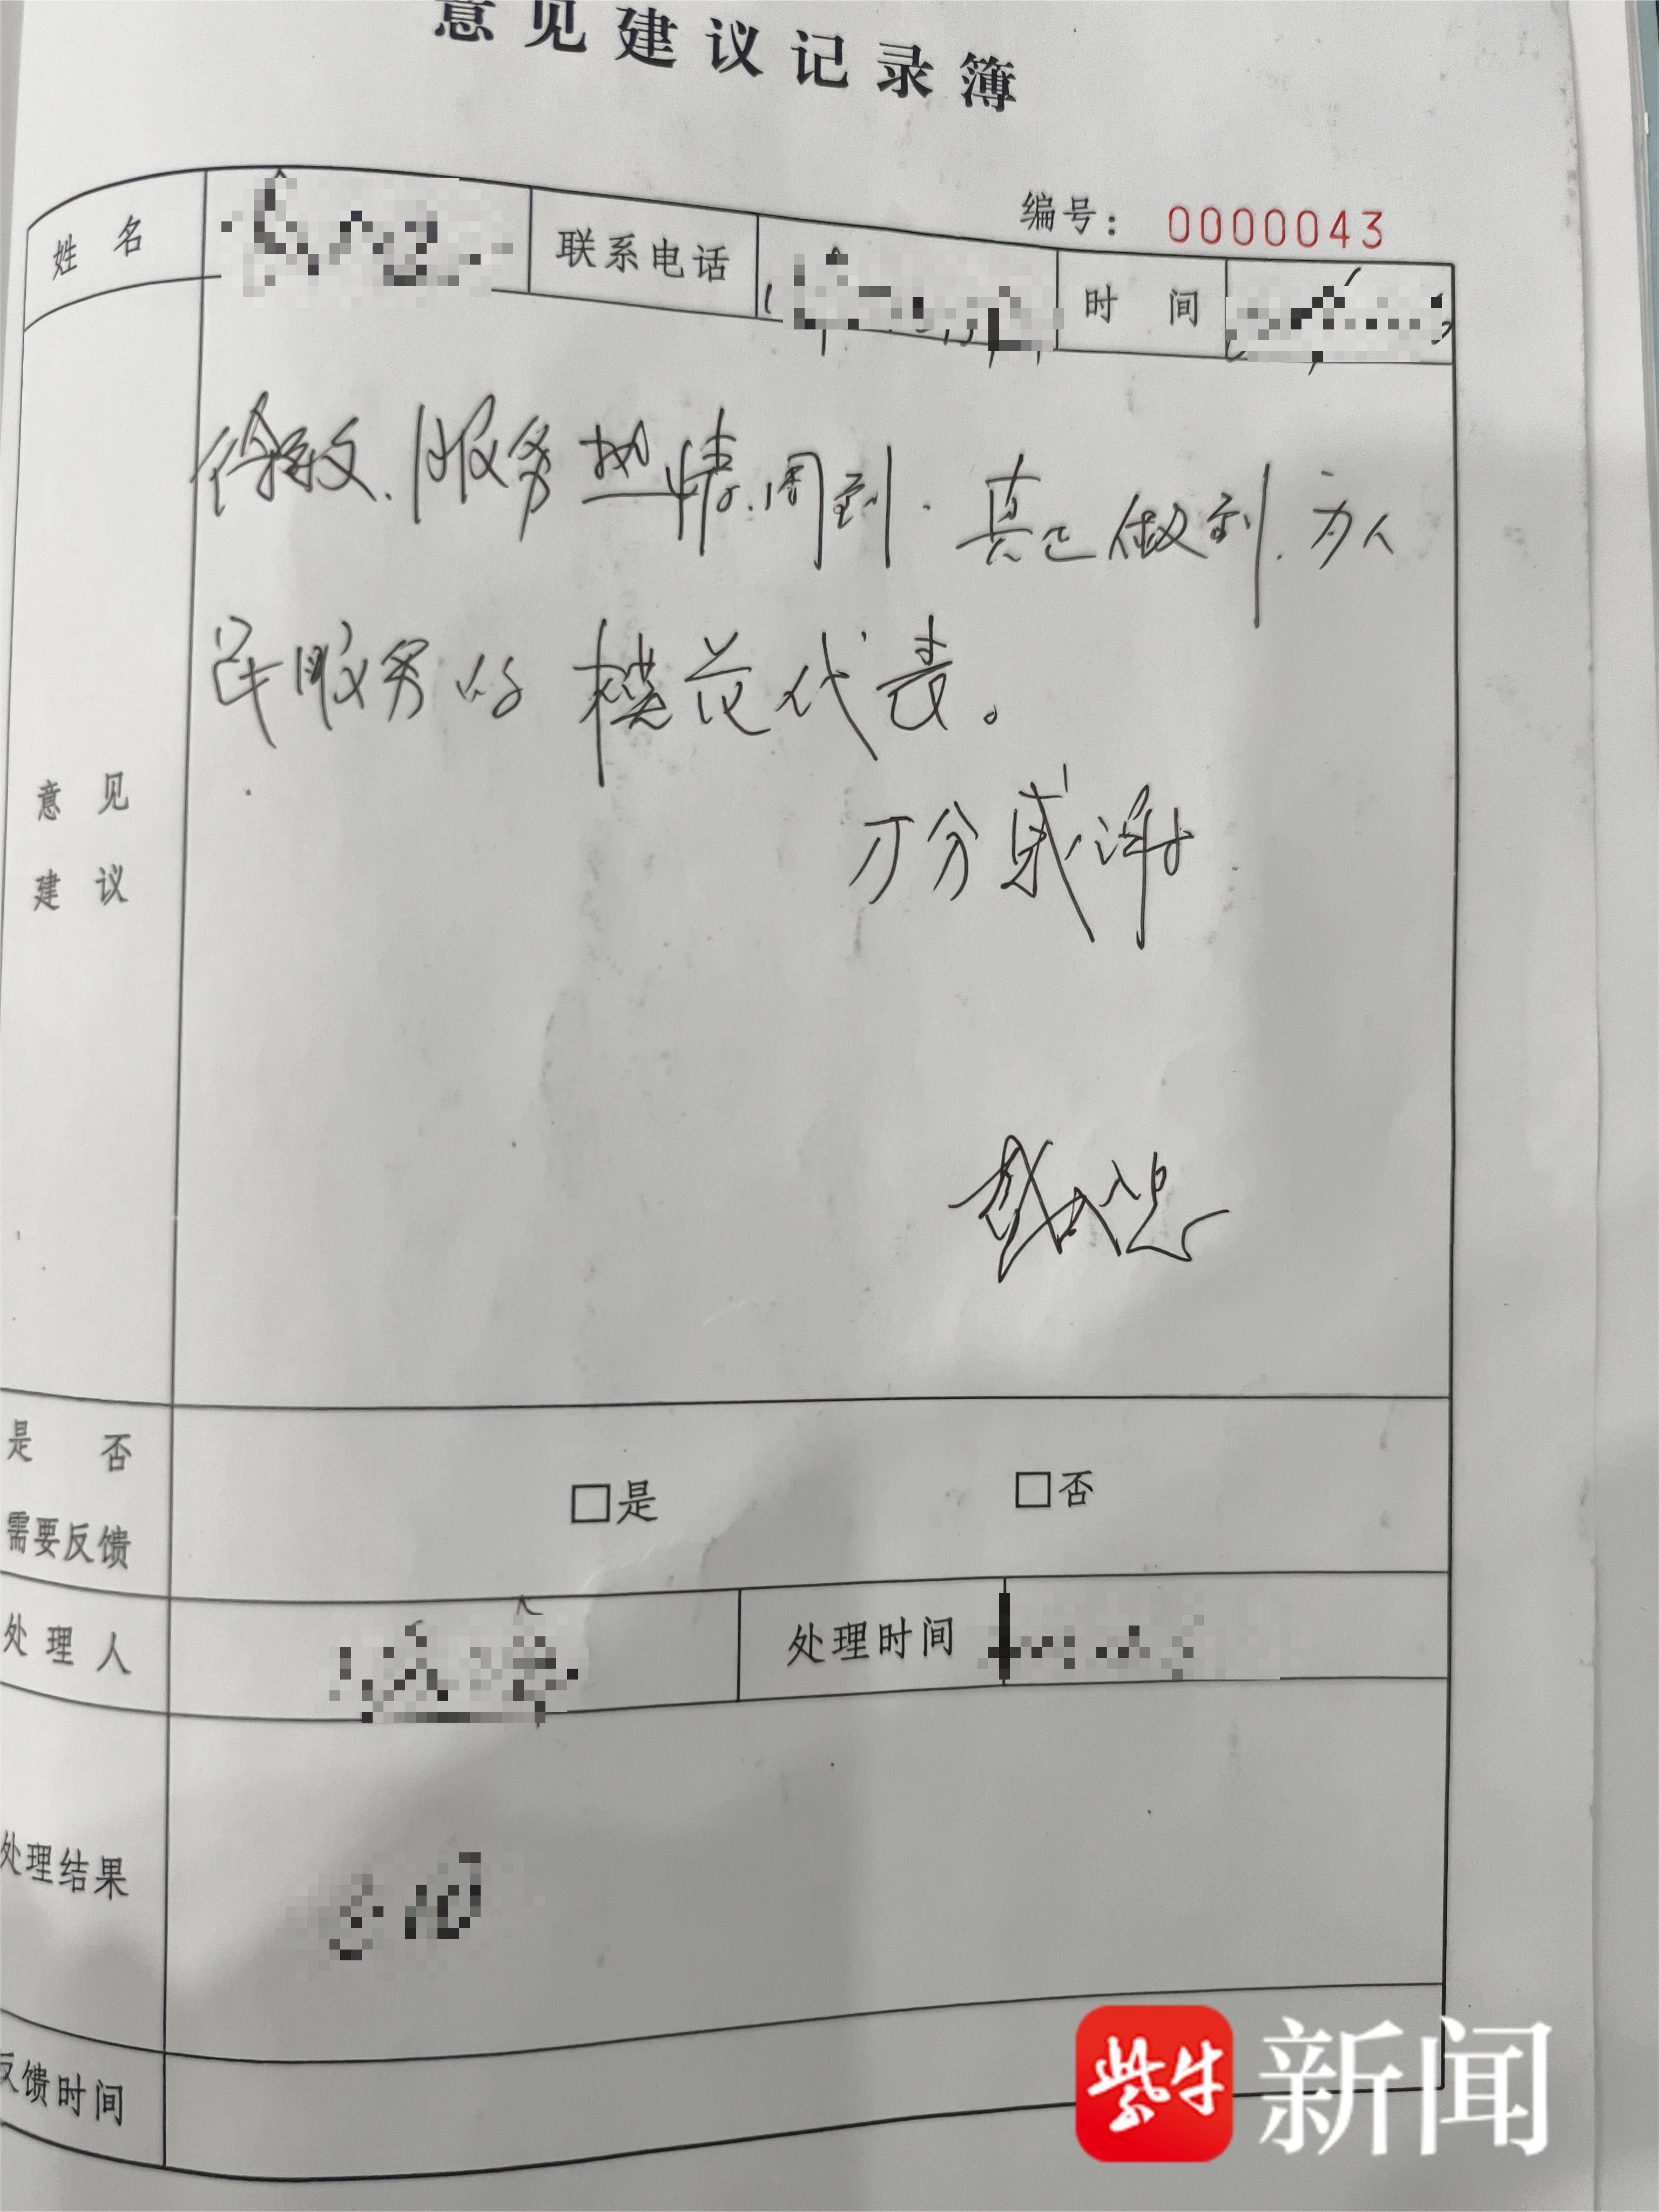 意见建议记录簿
编号：0000043
姓名 联系电话 时间
服务热情.周到.真正做到.为人
民服务的模范代表。
万分感谢
意见
建议
是否
需要反馈
□是 □否
处理人 处理时间
处理结果
反馈时间
紫牛新闻